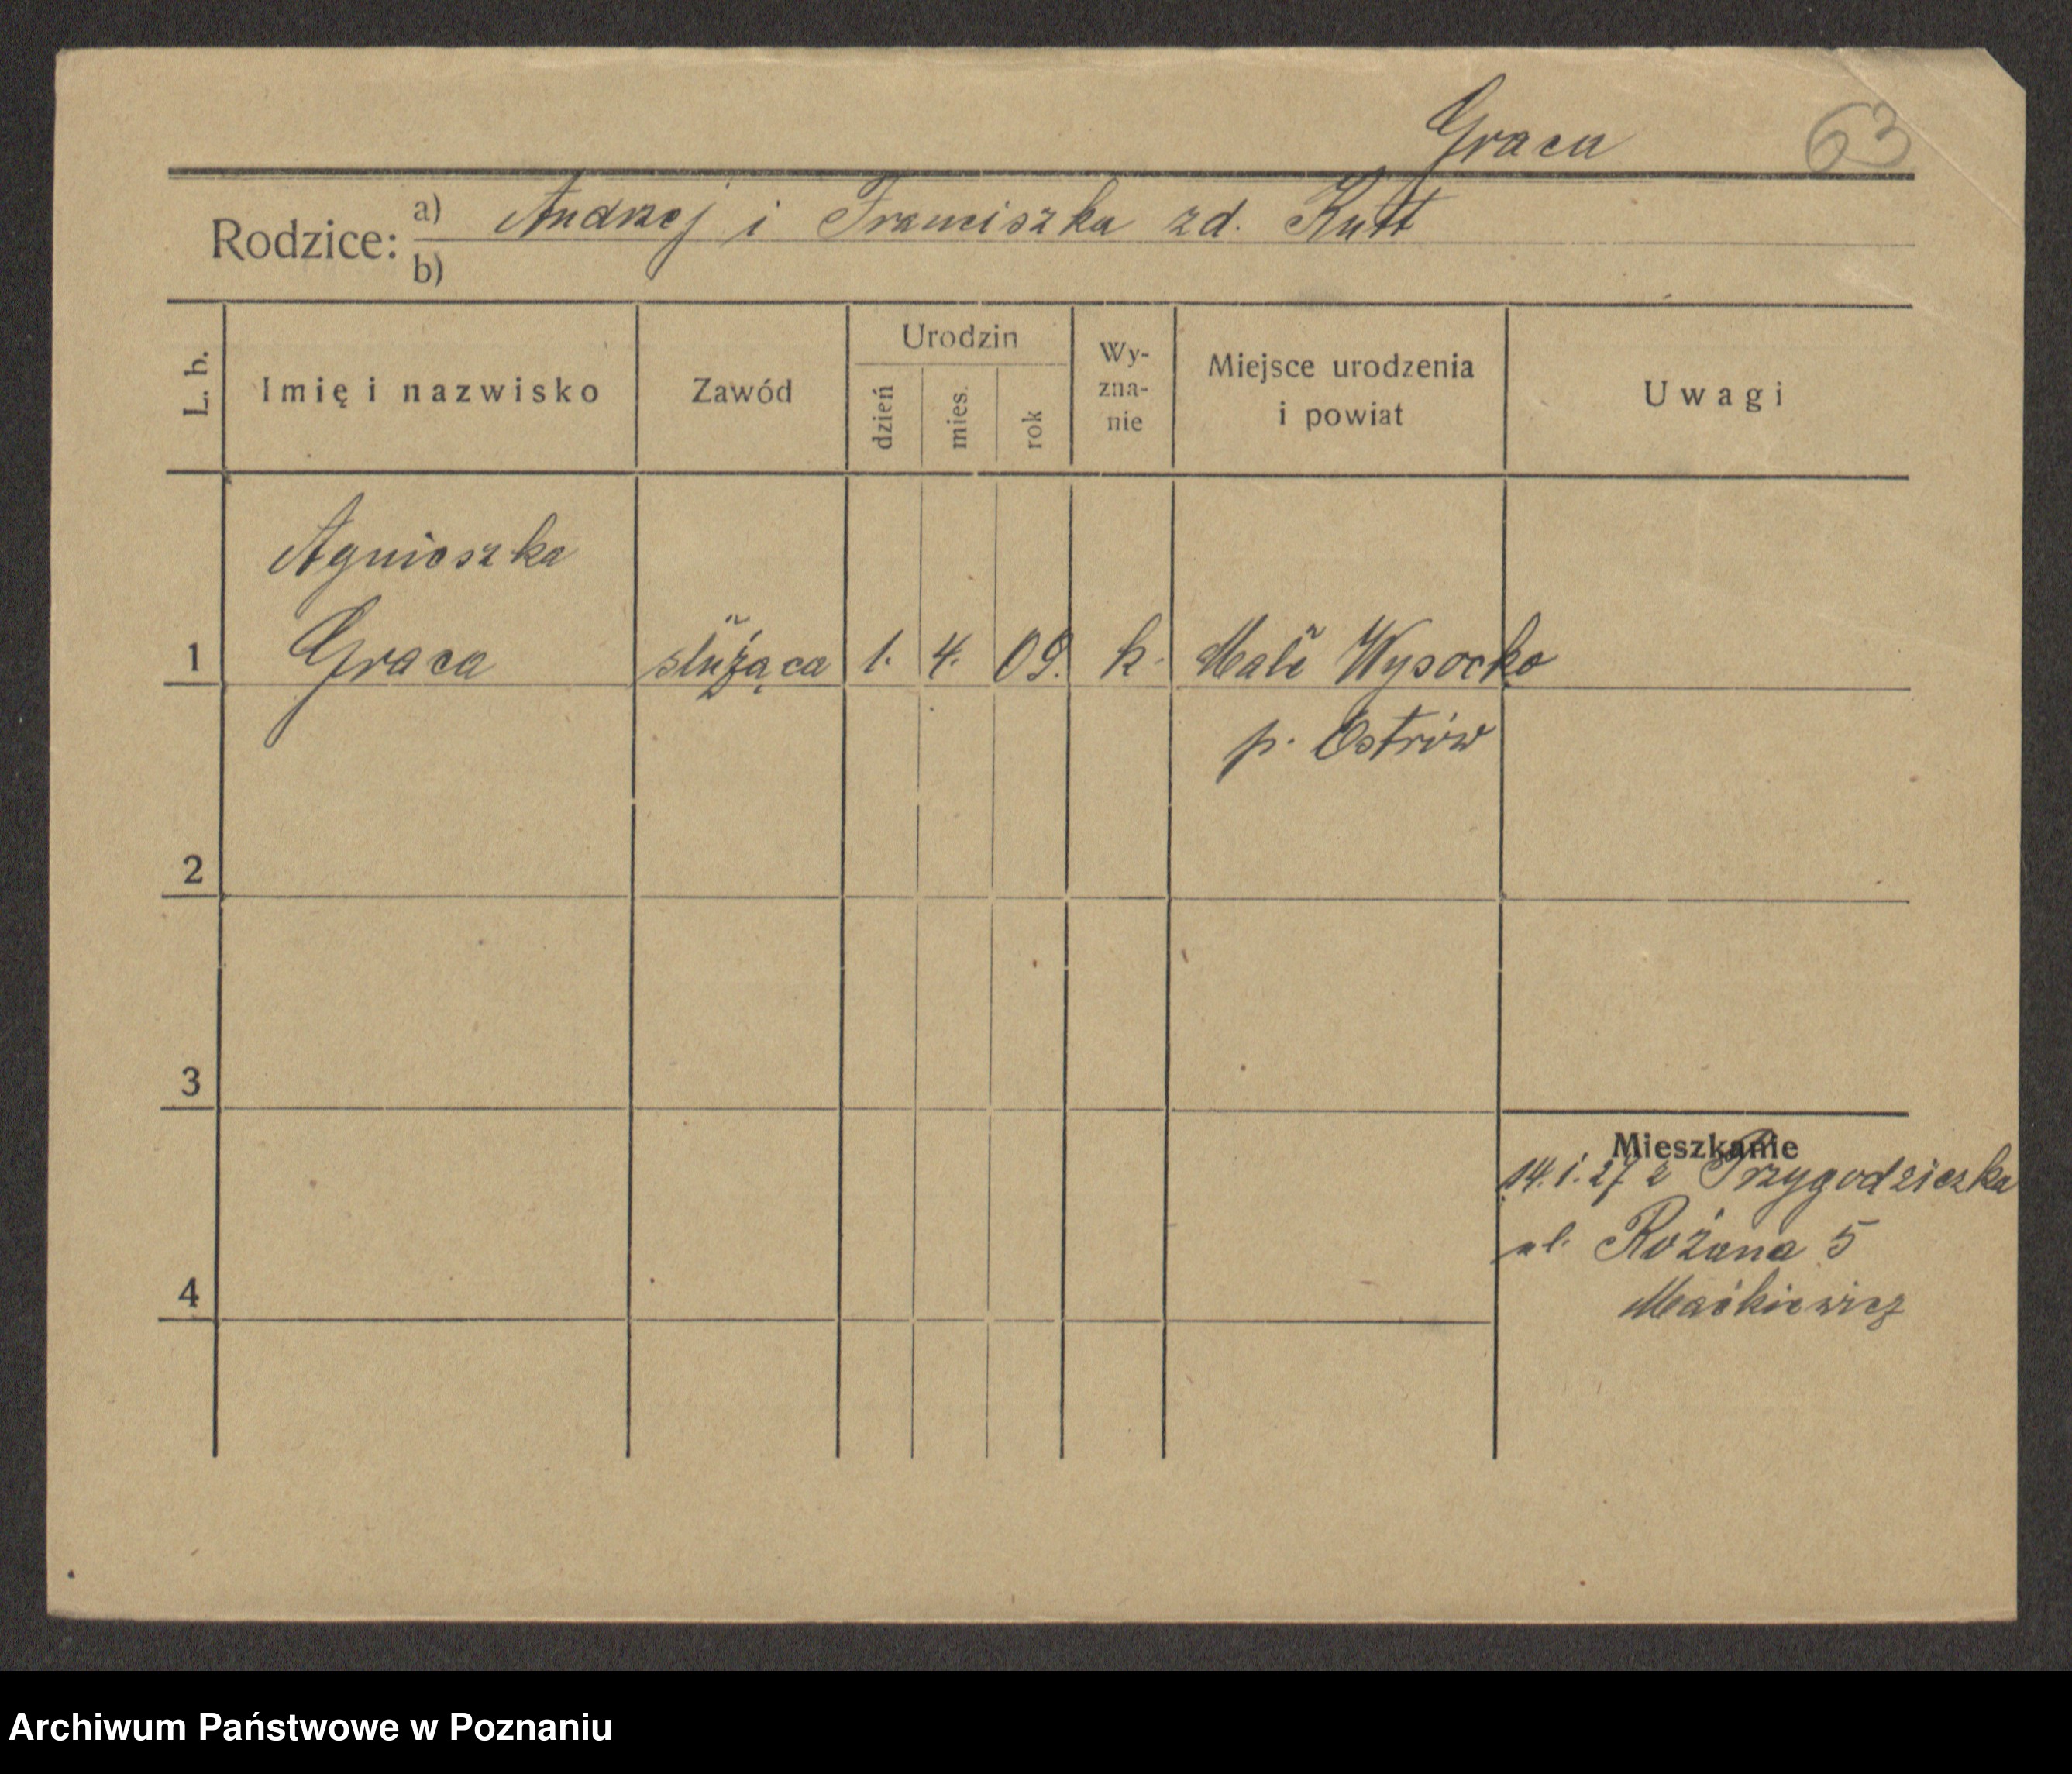 Graca
63
Rodzice: a) Andrzej i Franciszka zd. Kutt
b)
L. b.
Imię i nazwisko
Zawód
Urodzin
dzień
mies.
rok
Wy-
zna-
nie
Miejsce urodzenia
i powiat
Uwagi
Agnieszka
1 Graca służąca 1. 4. 09. k. Małe Wysocko
p. Ostrów
2
3
Mieszkanie
14.1.27 z Przygodziczka
ul. Różana 5
4 Maćkiewicz
Archiwum Państwowe w Poznaniu